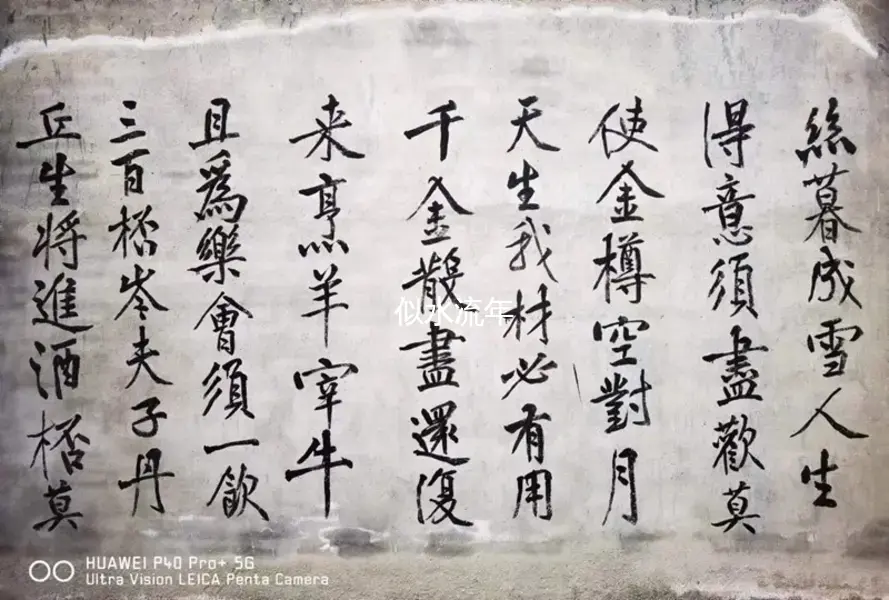 絲暮成雪人生
得意須盡歡莫
使金樽空對月
天生我材必有用
千金散盡還復
来烹羊宰牛
且爲樂會須一飲
三百桮岑夫子丹
丘生將進酒桮莫
似水流年
HUAWEI P40 Pro+ 5G
Ultra Vision LEICA Penta Camera